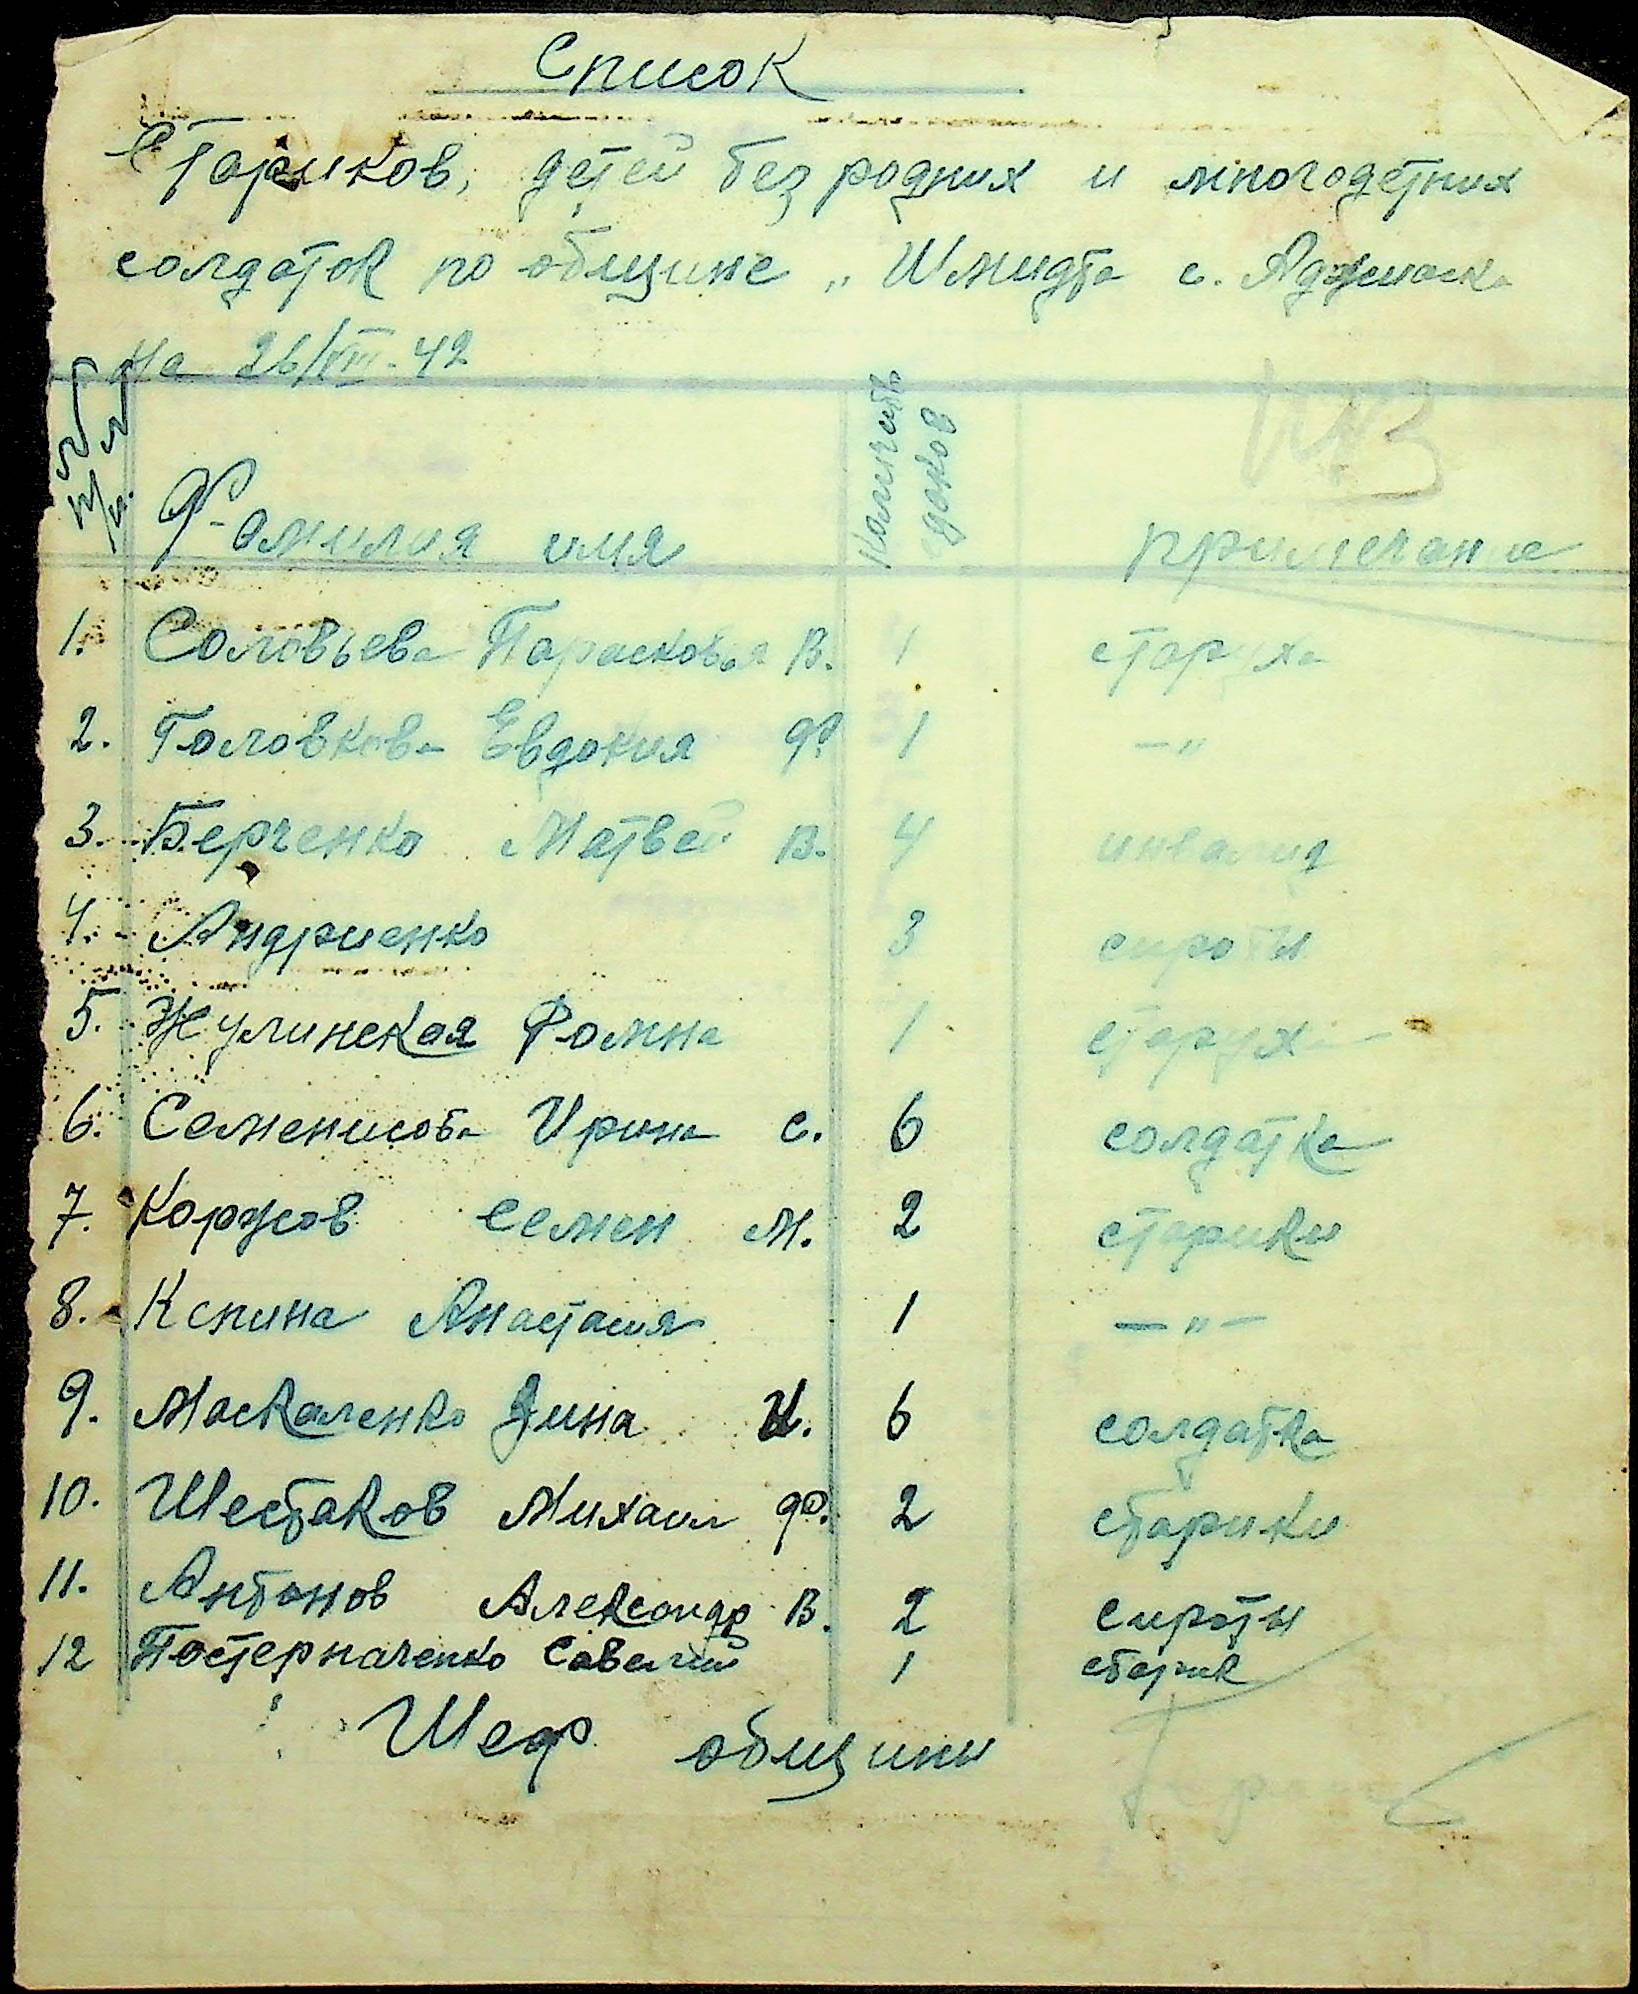 Список
Стариков, детей без родних и многодетних
солдаток по общине „ Шмидта с. Аджиаска
на 26/VIII-42
№№ п/п. Фамилия имя Количеств едоков примечание
1. Соловьева Парасковья В. 1 старуха
2. Головкова Евдокия Ф 1 —"
3. Берченко Матвей В. 4 инвалид
4. Андриенко 3 сироты
5. Жулинская Фомна 1 старуха
6. Семенисова Ирина С. 6 солдатка
7. Коржов Семен М. 2 старики
8. Кспина Анастасия 1 —"—
9. Маскаленко Дина И. 6 солдатка
10. Шестаков Михаил Ф. 2 старики
11. Антонов Александр В. 2 сироты
12 Постерначенко Савелий 1 старик
Шеф общини